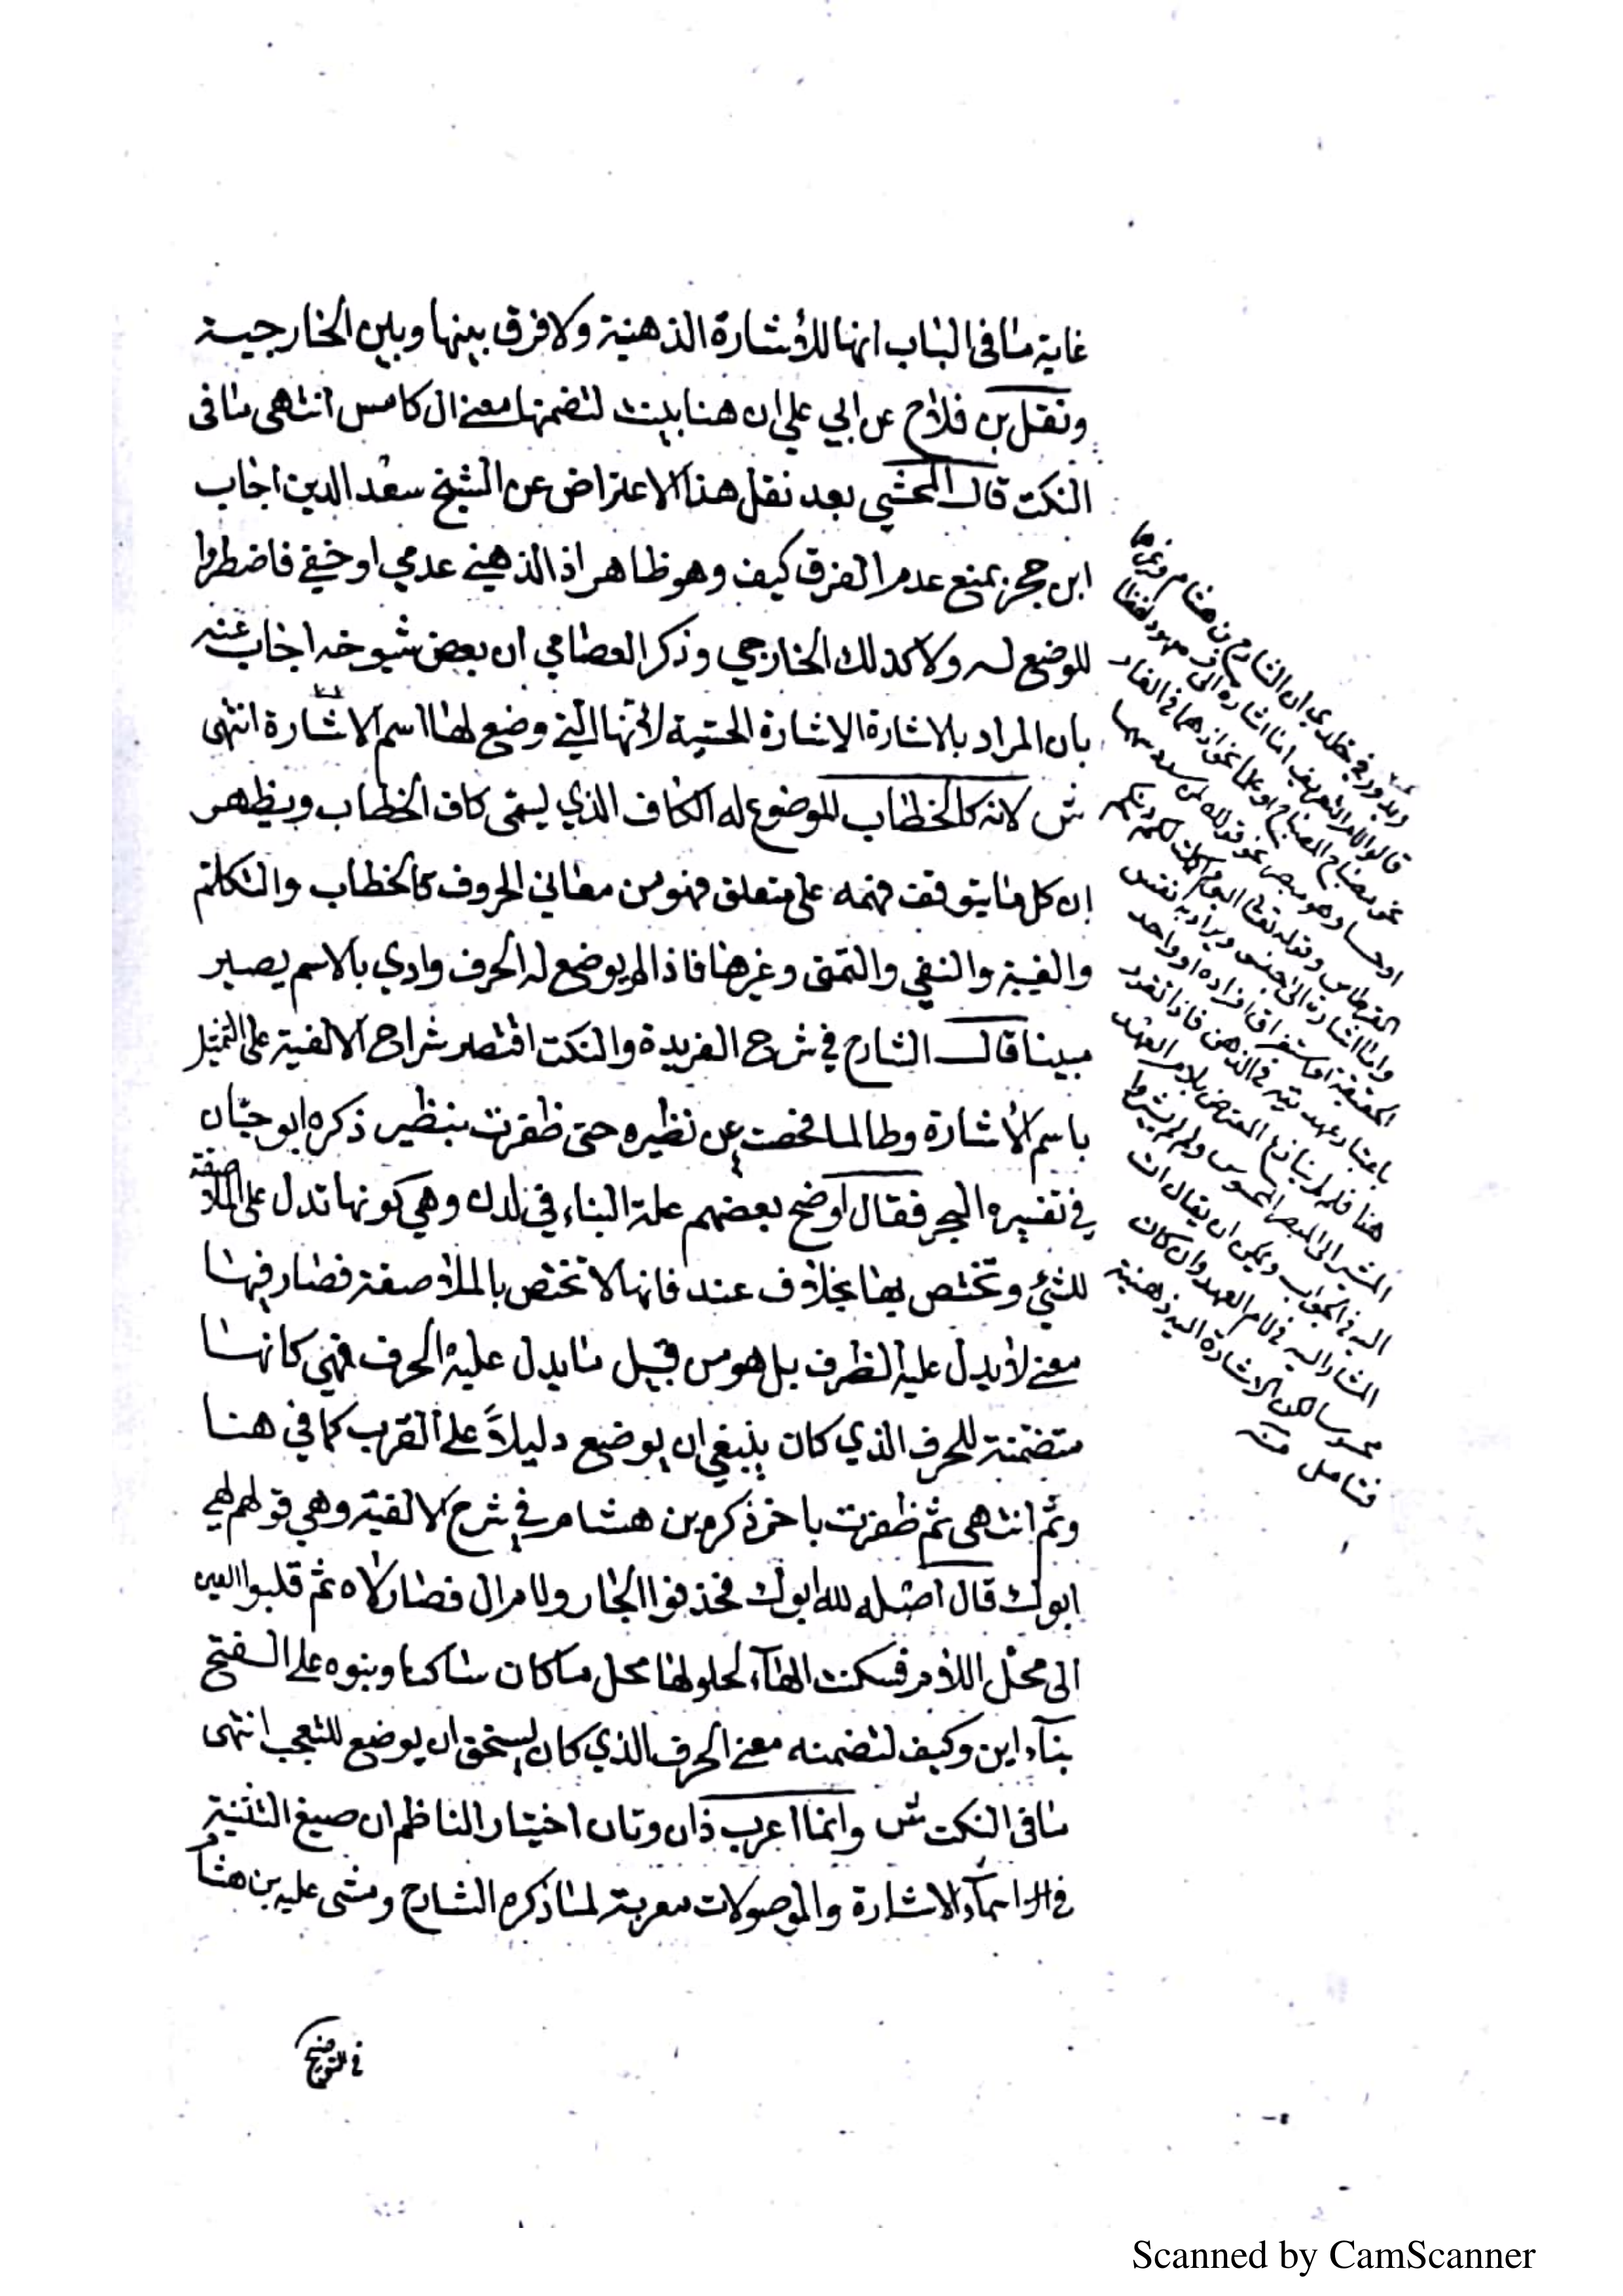 غاية ما في الباب انها للاشارة الذهنية ولا فرق بينها وبين الخارجية
ونقل بن فلاح عن ابي علي ان هنا بنيت لتضمنها معنى ال كامس انتهى ما في
النكت قال المحشي بعد نقل هذا الاعتراض عن الشيخ سعد الدين اجاب
ابن حجر بمنع عدم الفرق كيف وهو ظاهر اذ الذهني عدمي او خفي فاضطروا
للوضع له ولا كذلك الخارجي وذكر العصامي ان بعض شيوخه اجاب عنه
بان المراد بالاشارة الاشارة الحسية لانها التي وضع لها اسم الاشارة انتهى
ش لانه كالخطاب الموضوع له الكاف الذي يسمى كاف الخطاب ويظهر
ان كل ما يتوقف فهمه على متعلق فهو من معاني الحروف كالخطاب والتكلم
والغيبة والنفي والتمني وغيرها فاذا لم يوضع له الحرف وادي بالاسم يصير
مبينا قال الشارح في شرح الفريدة والنكت اقتصر شراح الالفية على التمثيل
باسم الاشارة وطالما فحصت عن نظيره حتى ظفرت بنظير ذكره ابو حيان
في تفسيره البحر فقال اوضح بعضهم علة البناء في لدن وهي كونها تدل على الملاصقة
للشئ وتختص بها بخلاف عند فانها لا تختص بالملاصقة فصار فيها
معنى لا يدل عليه الظرف بل هو من قبيل ما يدل عليه الحرف فهي كانها
متضمنة للحرف الذي كان ينبغي ان يوضع دليلاً على القرب كما في هنا
وثم انتهى ثم ظفرت باخر ذكره بن هشام في شرح الالفية وهي قولهم لهي
ابوك قال اصله لله ابوك فحذفوا الجار ولام ال فصار لاه ثم قلبوا العين
الى محل اللام فسكنت الهاء لحلولها محل ما كان ساكنا وبنوه على الفتح
بناء اين وكيف لتضمنه معنى الحرف الذي كان يستحق ان يوضع للتعجب انتهى
ما في النكت ش وانما اعرب ذان وتان اختيار الناظم ان صيغ التثنية
في اسماء الاشارة والموصولات معربة لما ذكره الشارح ومشى عليه بن هشام
في التوضيح
ويدور في خلدي ان الشارح بن هشام وغيرهما
قالوا لام التعريف اما اشارة الى معهود لفظا
نحو مصباح المصباح او علما نحو اذ هما في الغار
او حسا وهو مبصر نحو قولك لمن سدد سهما
القرطاس وقوله تعالى اليوم اكملت لكم دينكم
واما اشارة الى الجنس ويراد به نفس
الحقيقة او استغراق افراده او واحد
باعتبار عهديته في الذهن فاذا تقرر
هنا فلم لم ينازع المعترض بلام العهد
المشير الى المبصر المحسوس ولم لم يشيروا
اليه في الجواب ويمكن ان يقال ان
المشار اليه في لام العهد وان كان
محسوسا لكن الاشارة اليه ذهنية
فتامل منه
Scanned by CamScanner